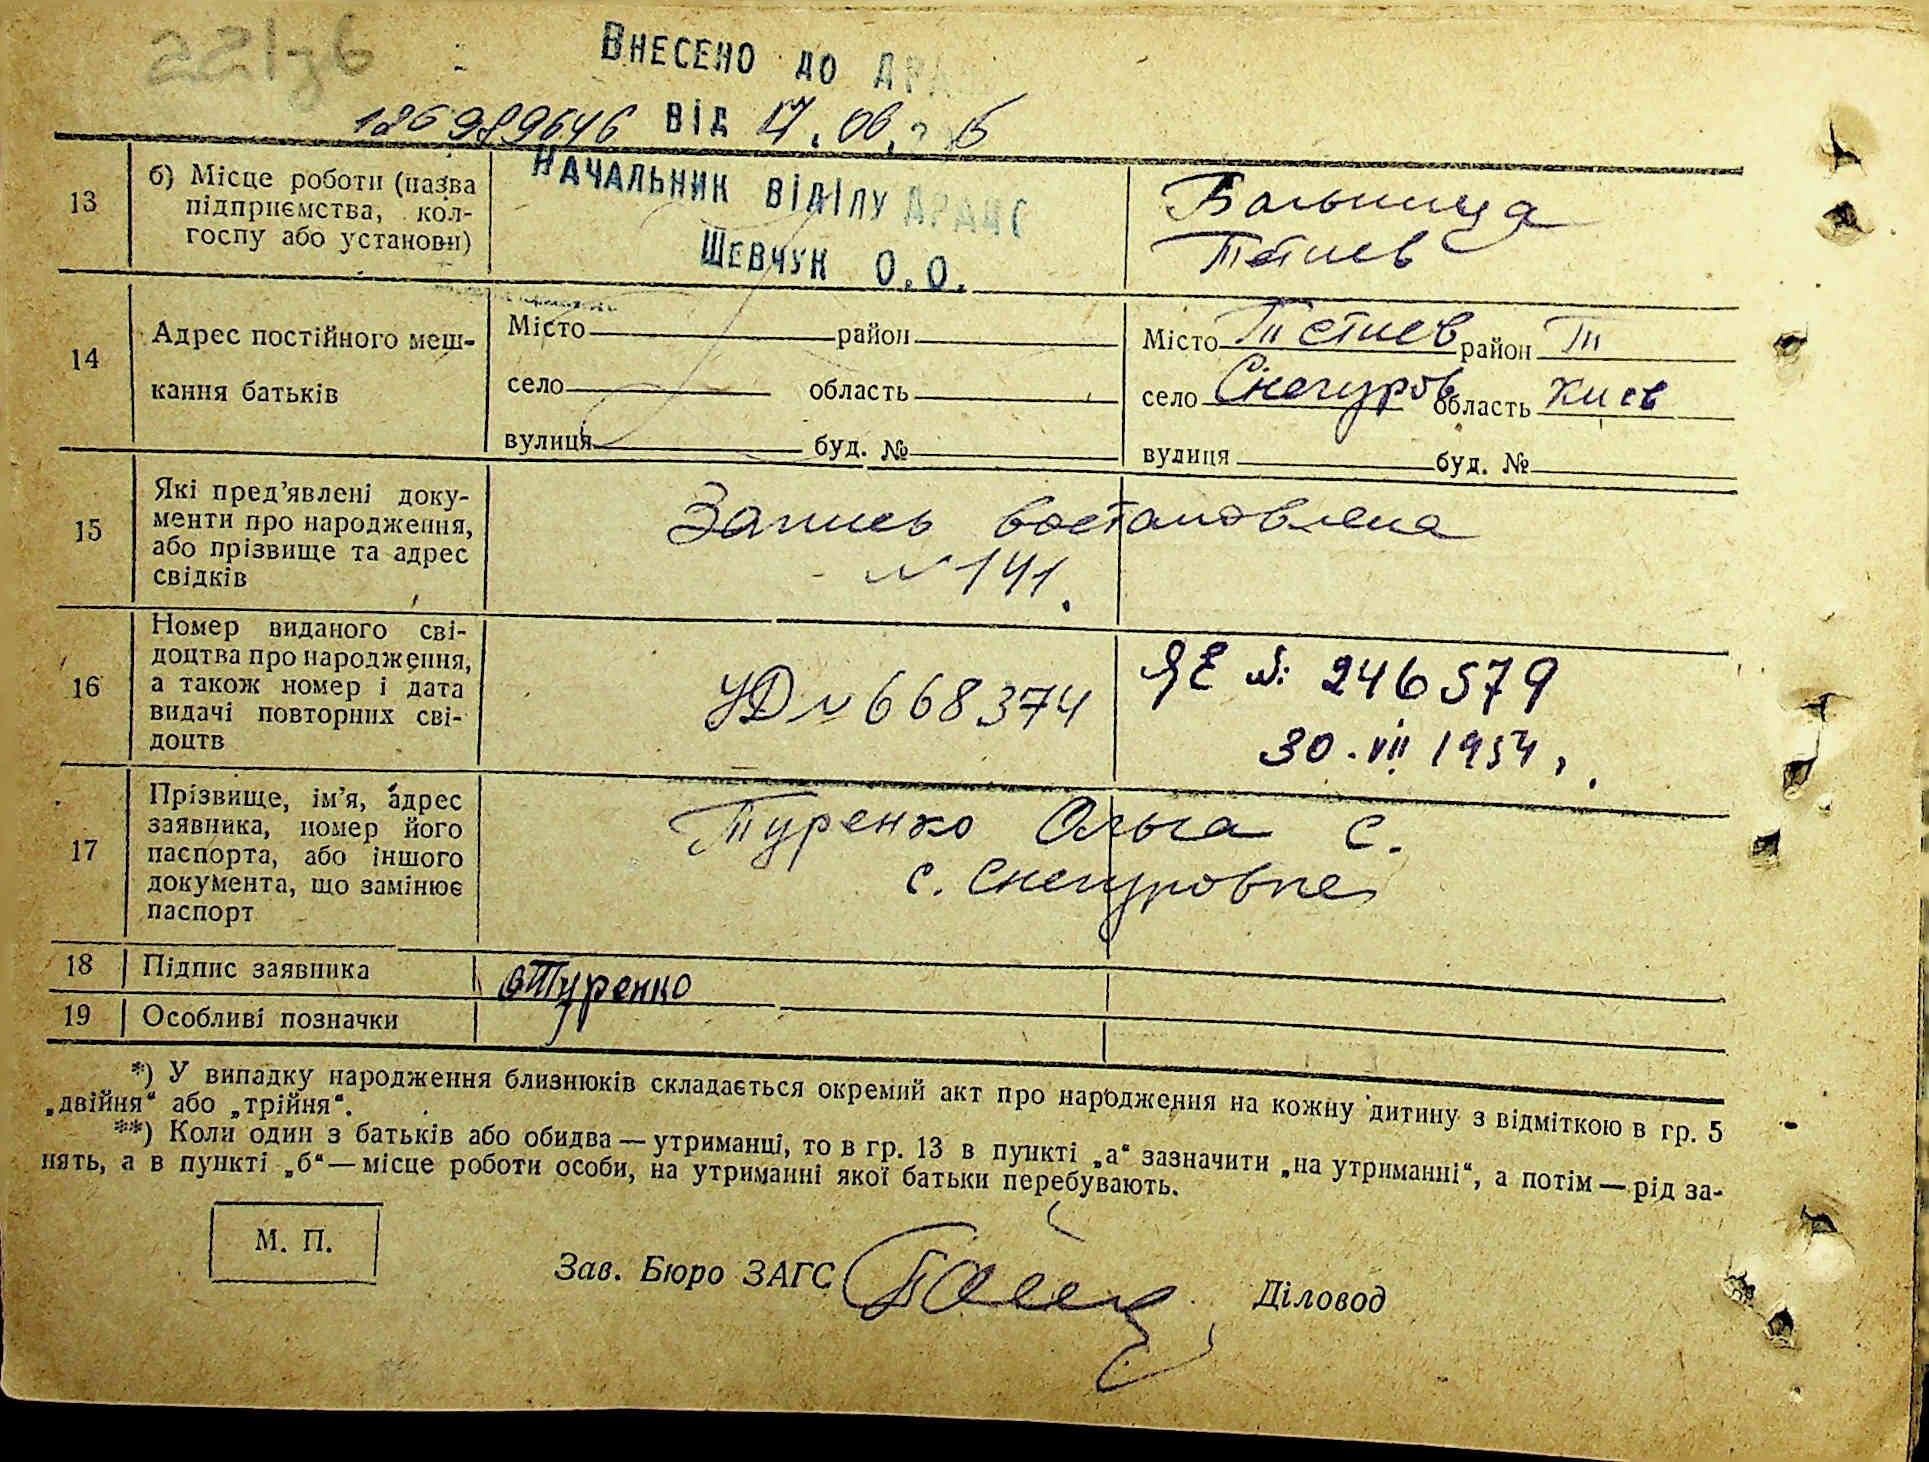 221зб
Внесено до ДРА
126989646 від 17.06.
Начальник відділу ДРАЦС
Шевчук О.О.
13 б) Місце роботи (назва підприємства, колгоспу або установи)
Больница
Тетиев
14 Адрес постійного мешкання батьків
Місто район
село область
вулиця буд. №
Місто Тетиев район Т
село Снегуров область Киев
вулиця буд. №
15 Які пред’явлені документи про народження, або прізвище та адрес свідків
Запись востановлена
№ 141.
16 Номер виданого свідоцтва про народження, а також номер і дата видачі повторних свідоцтв
УД № 668374
ЯЕ №: 246579
30.VII 1954,
17 Прізвище, ім’я, адрес заявника, номер його паспорта, або іншого документа, що замінює паспорт
Туренко Ольга С.
с. Снегуровке
18 Підпис заявника
ОТуренко
19 Особливі позначки
*) У випадку народження близнюків складається окремий акт про народження на кожну дитину з відміткою в гр. 5
„двійня“ або „трійня“.
**) Коли один з батьків або обидва — утриманці, то в гр. 13 в пункті „а“ зазначити „на утриманні“, а потім — рід за-
нять, а в пункті „б“ — місце роботи особи, на утриманні якої батьки перебувають.
М. П.
Зав. Бюро ЗАГС
Діловод